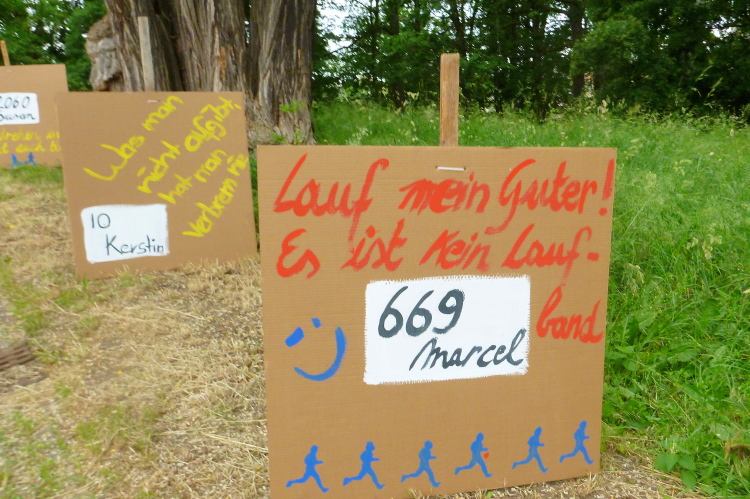 Lauf mein Guter!
Es ist kein Lauf-
band
669
Marcel
Was man
nicht aufgibt,
hat man
verloren nie
10
Kerstin
2060
Susan